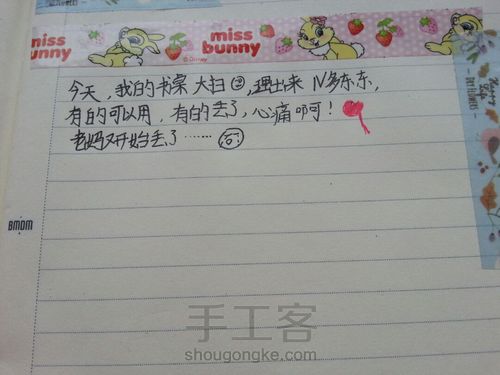 miss bunny
miss bunny
© Disney
今天,我的书桌大扫②,理出来N多东东,
有的可以用,有的丢了,心痛啊!
老妈又开始丢了……
BMDM
手工客
shougongke.com